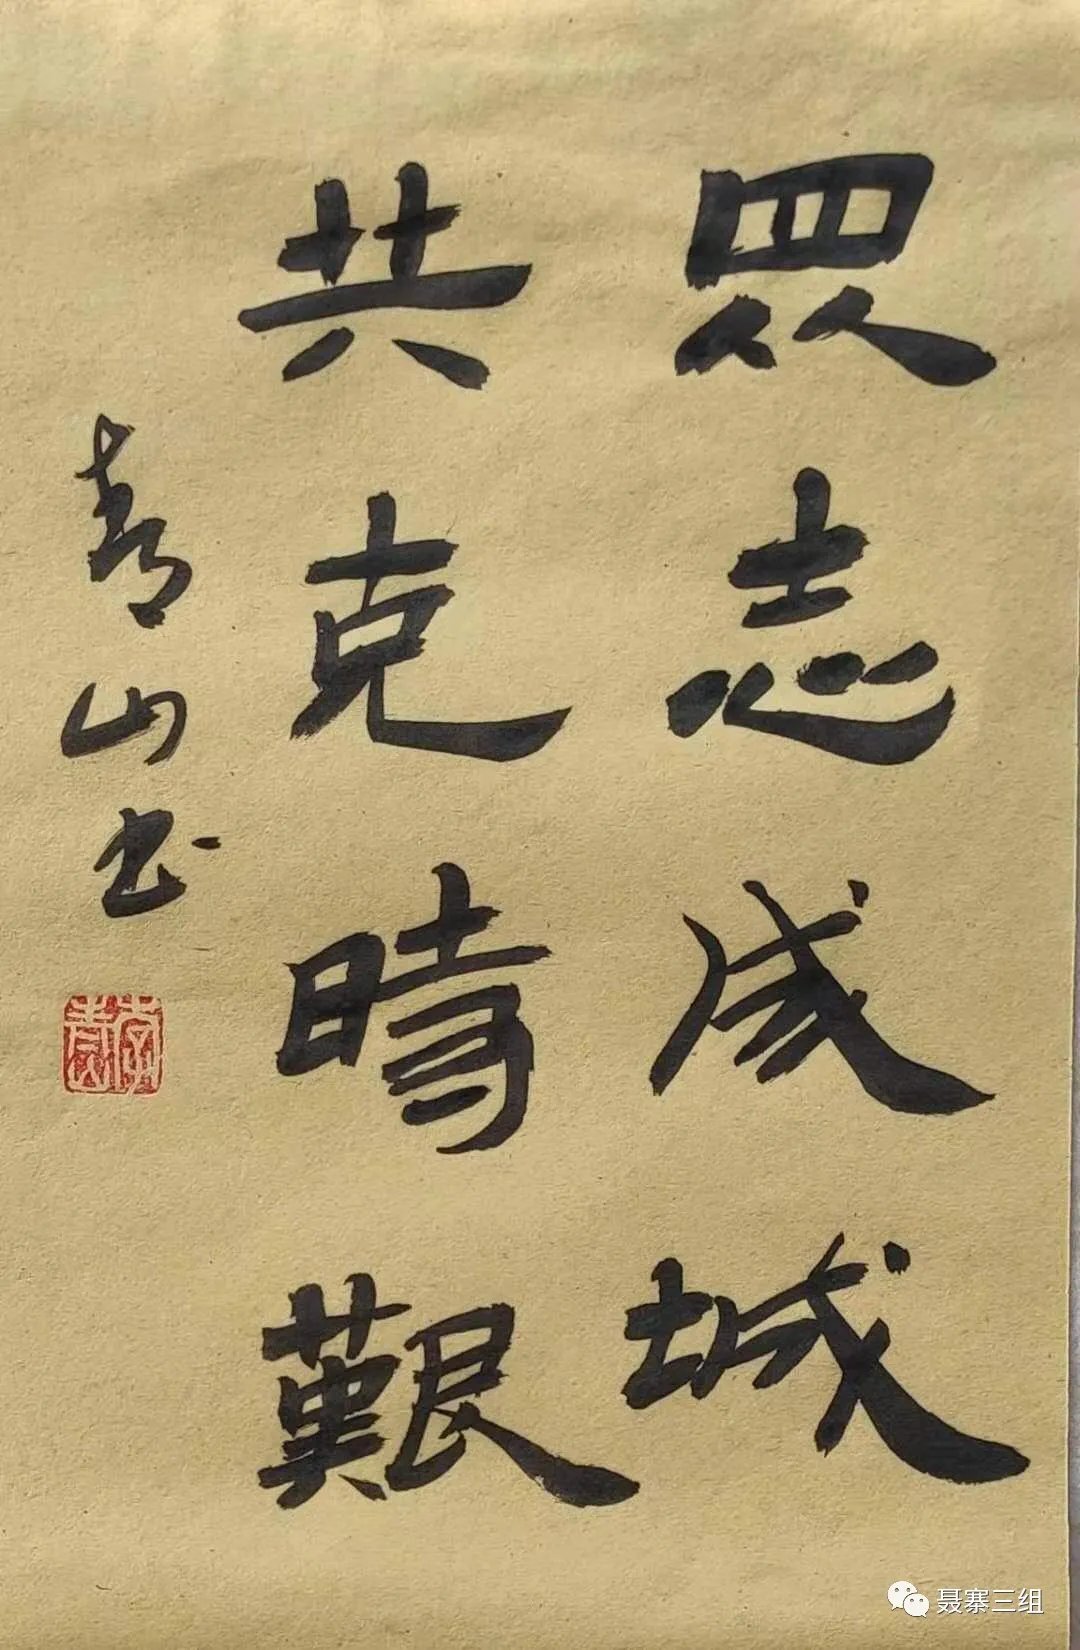 眾志成城
共克時艱
青山书
聂寨三组